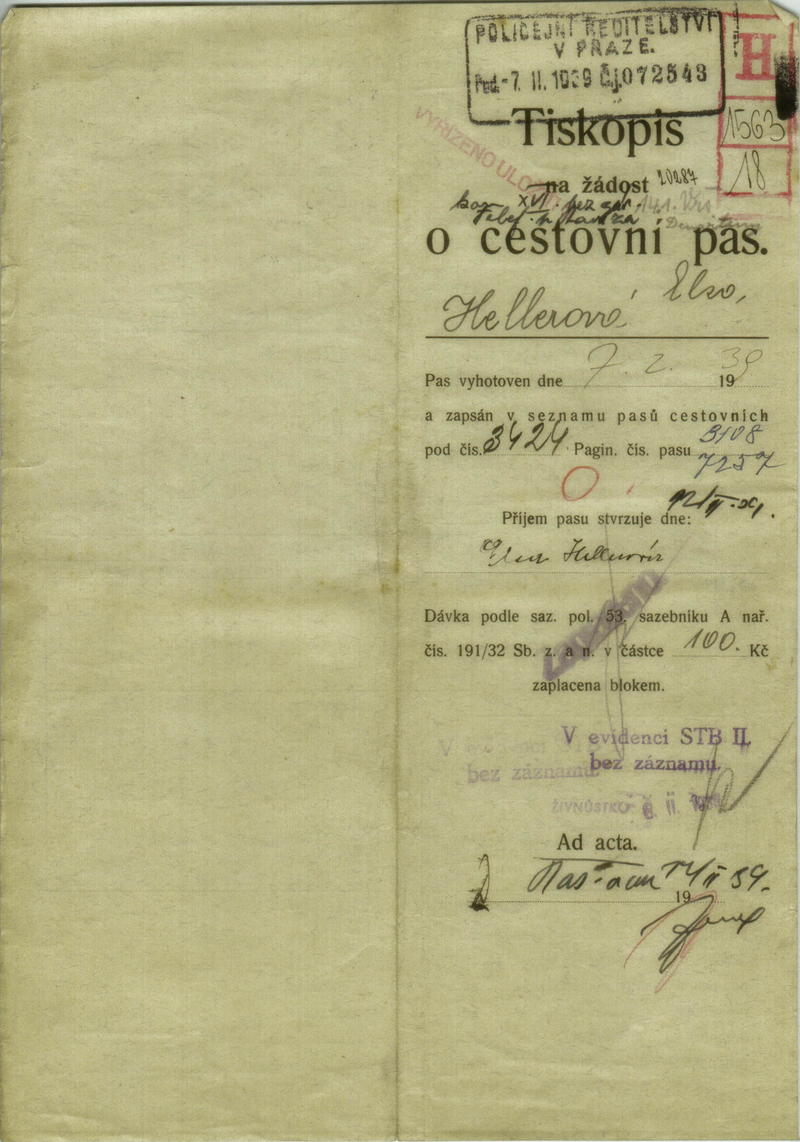 POLICEJNÍ ŘEDITELSTVÍ
V PRAZE.
Pod. -7. II. 1939 Čj. 072543
H
1563
18
Tiskopis
VYŘÍZENO ULOŽ
na žádost 20287
XVI. bez
o cestovní pas.
Hellerová Elsa,
Pas vyhotoven dne 7. 2. 1939
a zapsán v seznamu pasů cestovních
pod čís. 3424. Pagin. čís. pasu 3108
7257
12/II.
Příjem pasu stvrzuje dne:
Elsa Hellerová
Dávka podle saz. pol. 53. sazebníku A nař.
čís. 191/32 Sb. z. a n. v částce 100. Kč
zaplacena blokem.
V evidenci STB II.
bez záznamu.
V evidenci
bez záznamu.
ŽIVNOSTK 8. II.
Ad acta.
14/II 39.
19